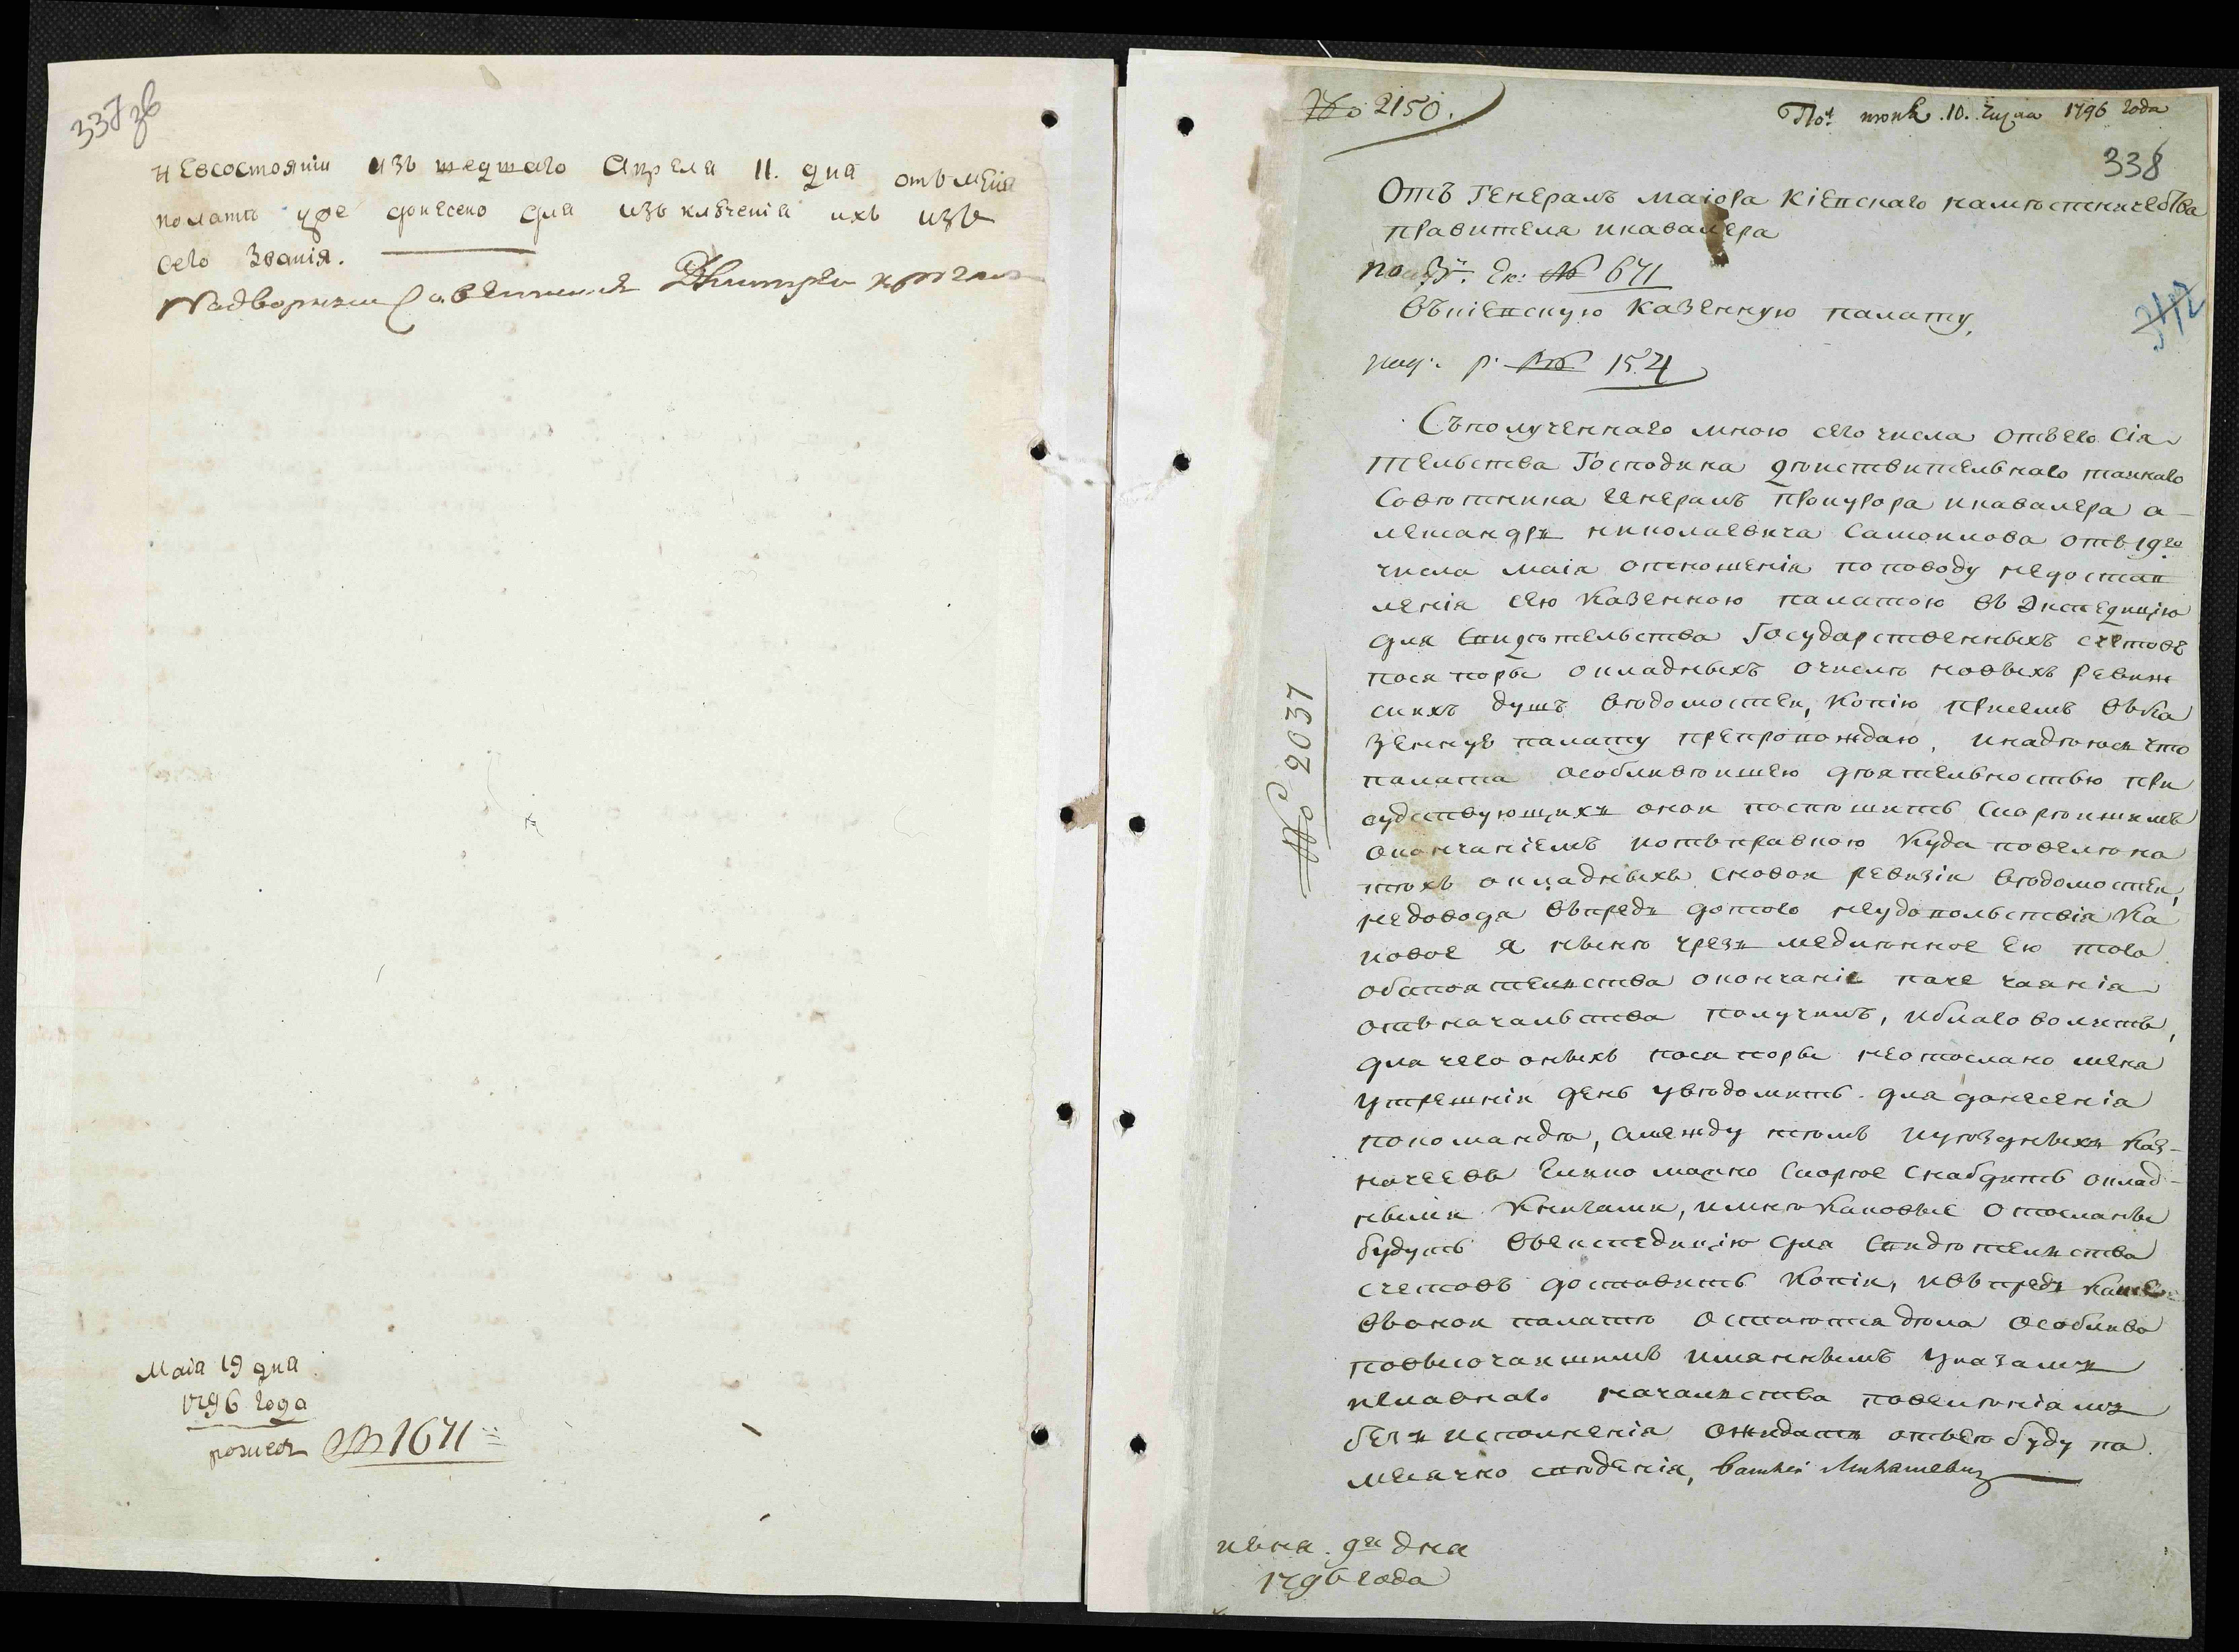 337 зв
невсостоянии изъ шедшаго Апреля 11. дня отъ меня
полате уже донесено для изъ ключения ихъ изъ
сего звания.
Надворный Советникъ Дмитрей
Маия 19 дня
1796 года
№ 1671
№ 2150.
Пол: июня 10. числа 1796 года
338
Отъ Генералъ маиора Киевскаго наместничества
правителя икавалера
по № 671
Въкиевскую казенную палату.
№ 154
342
Съполученнаго мною сего числа отъего Сия
тельства Господина действительнаго тайнаго
Советника генералъ прокурора икавалера а-
лександръ николаевича Самоилова отъ 19го
числа маия отношения поповоду недостав
ления сею казенною палатою въ Экспедицию
для свидетельства Государственныхъ счетовъ
посе поры окладныхъ очисле новыхъ ревиж
скихъ душъ ведомостей, копию присемъ въка
зенную палату препровождаю, инадеюся что
палата особливейшею деятельностью при
судствующихъ оной поспешитъ скорейшимъ
окончаниемъ иотъправкою куда повелено
техъ окладныхъ сновой ревизии ведомостей,
недоводя въпредъ дотого неудовольствия ка
ковое я ныне чрезъ медленное ею того
обстоятельства окончание паче чаяния
отъначальства получилъ, иблаговолитъ,
для чего оныхъ посе поры неотослано меня
утрешний день уведомить для донесения
покоманде, смежду темъ иуездныхъ каз-
начеевъ елико можно скорее снабдить оклад-
ными книгами, имне каковые отосланы
будутъ въекспедицию для свидетельства
счетовъ доставить копии, ивъпредъ какие
въоной палате остаются дела особливо
повысочайшимъ имяннымъ указамъ
иглавнаго началства повелениямъ
безъ исполнения ожидать отънее буду по
месячно сведения, Василей Милашевич
№ 2037
июня 9го дня
1796 года